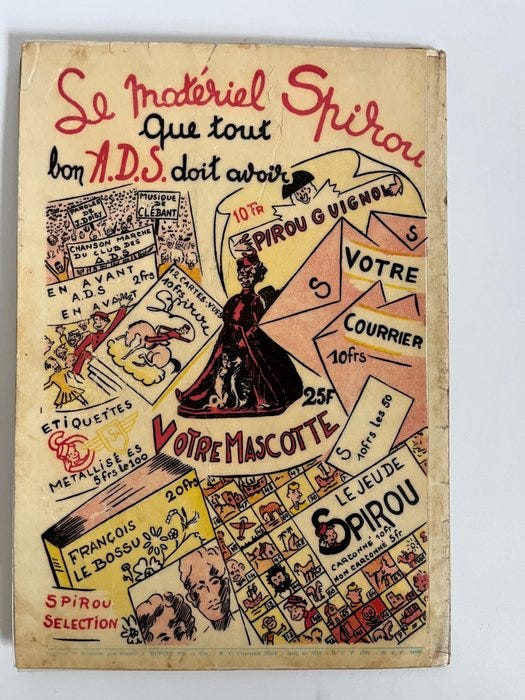 Le matériel Spirou
Que tout
bon A.D.S. doit avoir
PAROLES
DE
J. DOISY
MUSIQUE
DE
CLÉBANT
CHANSON MARCHE
DU CLUB DES
A D S
EN AVANT 2frs
A.D.S
EN AVANT
12 CARTES-VUES
10frs
Spirou
10 Fr
SPIROU GUIGNOL
S
S
VOTRE
COURRIER
10frs
25F
VOTRE MASCOTTE
S 10frs les 50
ETIQUETTES
METALLISÉES
5frs les 100
20frs
FRANÇOIS
LE BOSSU
SPIROU
SELECTION
LE JEU DE
SPIROU
CARTONNÉ 10frs
NON CARTONNÉ 5fr